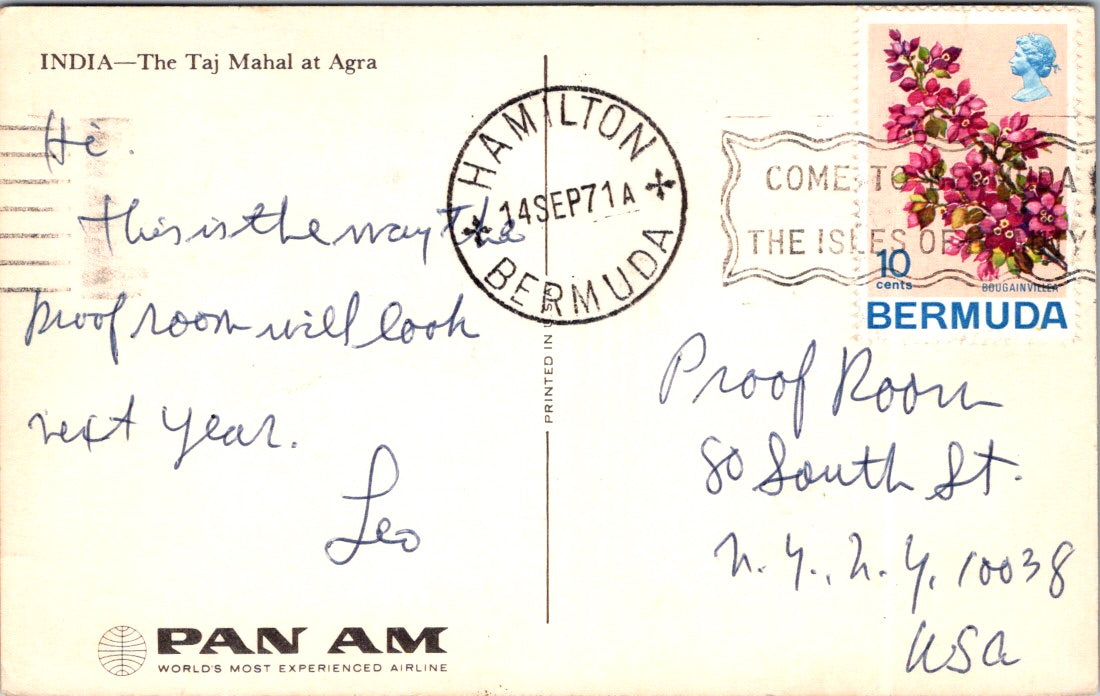 INDIA—The Taj Mahal at Agra
Hi.
This is the way the
proof room will look
next year.
Leo
PAN AM
WORLD'S MOST EXPERIENCED AIRLINE
PRINTED IN USA
HAMILTON
14 SEP 71 A
BERMUDA
COME TO BERMUDA
THE ISLES OF
10
cents
BOUGAINVILLEA
BERMUDA
Proof Room
80 South St.
N.Y., N.Y. 10038
USA